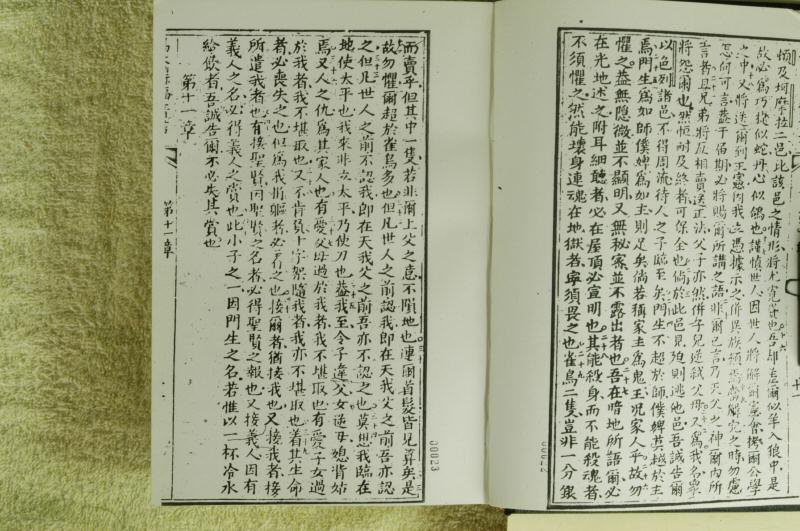 頓及坷摩拉二邑比該邑之情形將尤寬容也吾即差爾似羊入狼中是
故必為巧捷似蛇丹心似鴿也謹慎世人因世人將解爾憲衙擲爾公學
之中又將送爾到王憲因我以憑據示之併異族類焉當解究之時勿慮
怎何可言蓋于伯期必將賜爾所講之語非爾已言乃天父之神爾內所
言者且兄弟將反相賣送正法父子亦然併子兒逆弑父母又為我名眾
將怨爾也然恆耐及終者可保全也倘於此邑見廹則逃他邑吾誠告爾
以色列諸邑不得周流待人之子臨至矣門生不超於師僕婢莫越於主
焉門生為如師僕婢為如主則足矣倘若稱家主為鬼王況家人乎故勿
懼之蓋無隱微並不顯明又無秘密並不露出者也吾在暗地所語爾必
在光地述之附耳細聽者必在屋頂必宣明也其能殺身而不能殺魂者
不須懼之然能壞身連魂在地獄者寧須畏之也雀鳥二隻豈非一分銀
而賣乎但其中一隻若非爾上父之意不隕地也連爾首髮皆見算矣是
故勿懼爾超於雀鳥多也但凡世人之前認我即在天我父之前吾亦認
之但凡世人之前不認我即在天我父之前吾亦不認之也莫思我臨在
地使太平也我來非立太平乃使刀也蓋我至令子違父女逆母媳背姑
焉又人之仇為其家人也有愛父母過於我者我不堪取也有愛子女過
於我者我不堪取也又不肯負十字架隨我者我亦不堪取也着其生命
者必喪失之也但為我捐軀者必尋之也接爾者猶接我也又接我者接
所遣我者也有接聖賢因聖賢之名者必得聖賢之報也又接義人因有
義人之名必得義人之賞也此小子之一因門生之名若惟以一杯冷水
給飲者吾誠告爾不必失其賞也
第十一章
第十一章
00023